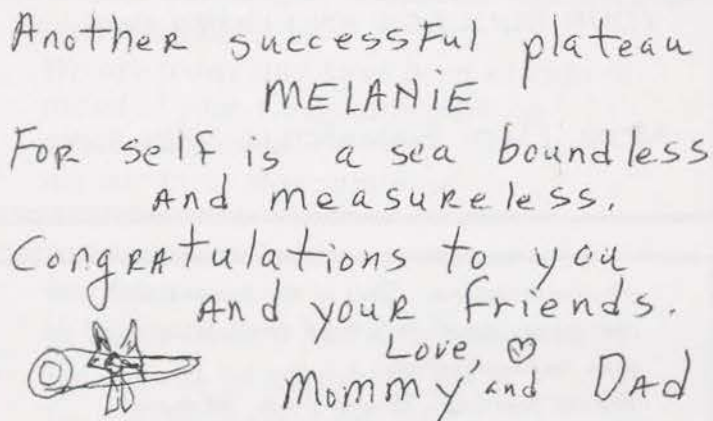 Another successful plateau
MELANiE
For self is a sea boundless
And measureless.
Congratulations to you
And your friends.
Love, ♡
Mommy and DAd